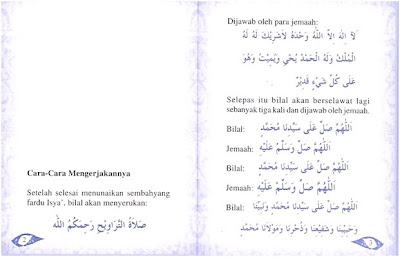 Cara-Cara Mengerjakannya
Setelah selesai menunaikan sembahyang
fardu Isya', bilal akan menyerukan:
صَلَاةُ التَّرَاوِيْحِ رَحِمَكُمُ اللّٰه
2
Dijawab oleh para jemaah:
لَآ اِلٰهَ اِلاَّ اللّٰهُ وَحْدَهُ لاَشَرِيْكَ لَهُ لَهُ
الْمُلْكُ وَلَهُ الْحَمْدُ يُحْيِ وَيُمِيْتُ وَهُوَ
عَلَى كُلِّ شَيْءٍ قَدِيْرٌ
Selepas itu bilal akan berselawat lagi
sebanyak tiga kali dan dijawab oleh jemaah.
Bilal: اَللّٰهُمَّ صَلِّ عَلَى سَيِّدِنَا مُحَمَّدٍ
Jemaah: اَللّٰهُمَّ صَلِّ وَسَلِّمْ عَلَيْهِ
Bilal: اَللّٰهُمَّ صَلِّ عَلَى سَيِّدِنَا مُحَمَّدٍ
Jemaah: اَللّٰهُمَّ صَلِّ وَسَلِّمْ عَلَيْهِ
Bilal: اَللّٰهُمَّ صَلِّ عَلَى سَيِّدِنَا مُحَمَّدٍ وَنَبِيِّنَا
وَحَبِيْبِنَا وَشَفِيْعِنَا وَذُخْرِنَا وَمَوْلاَنَا مُحَمَّدٍ
3